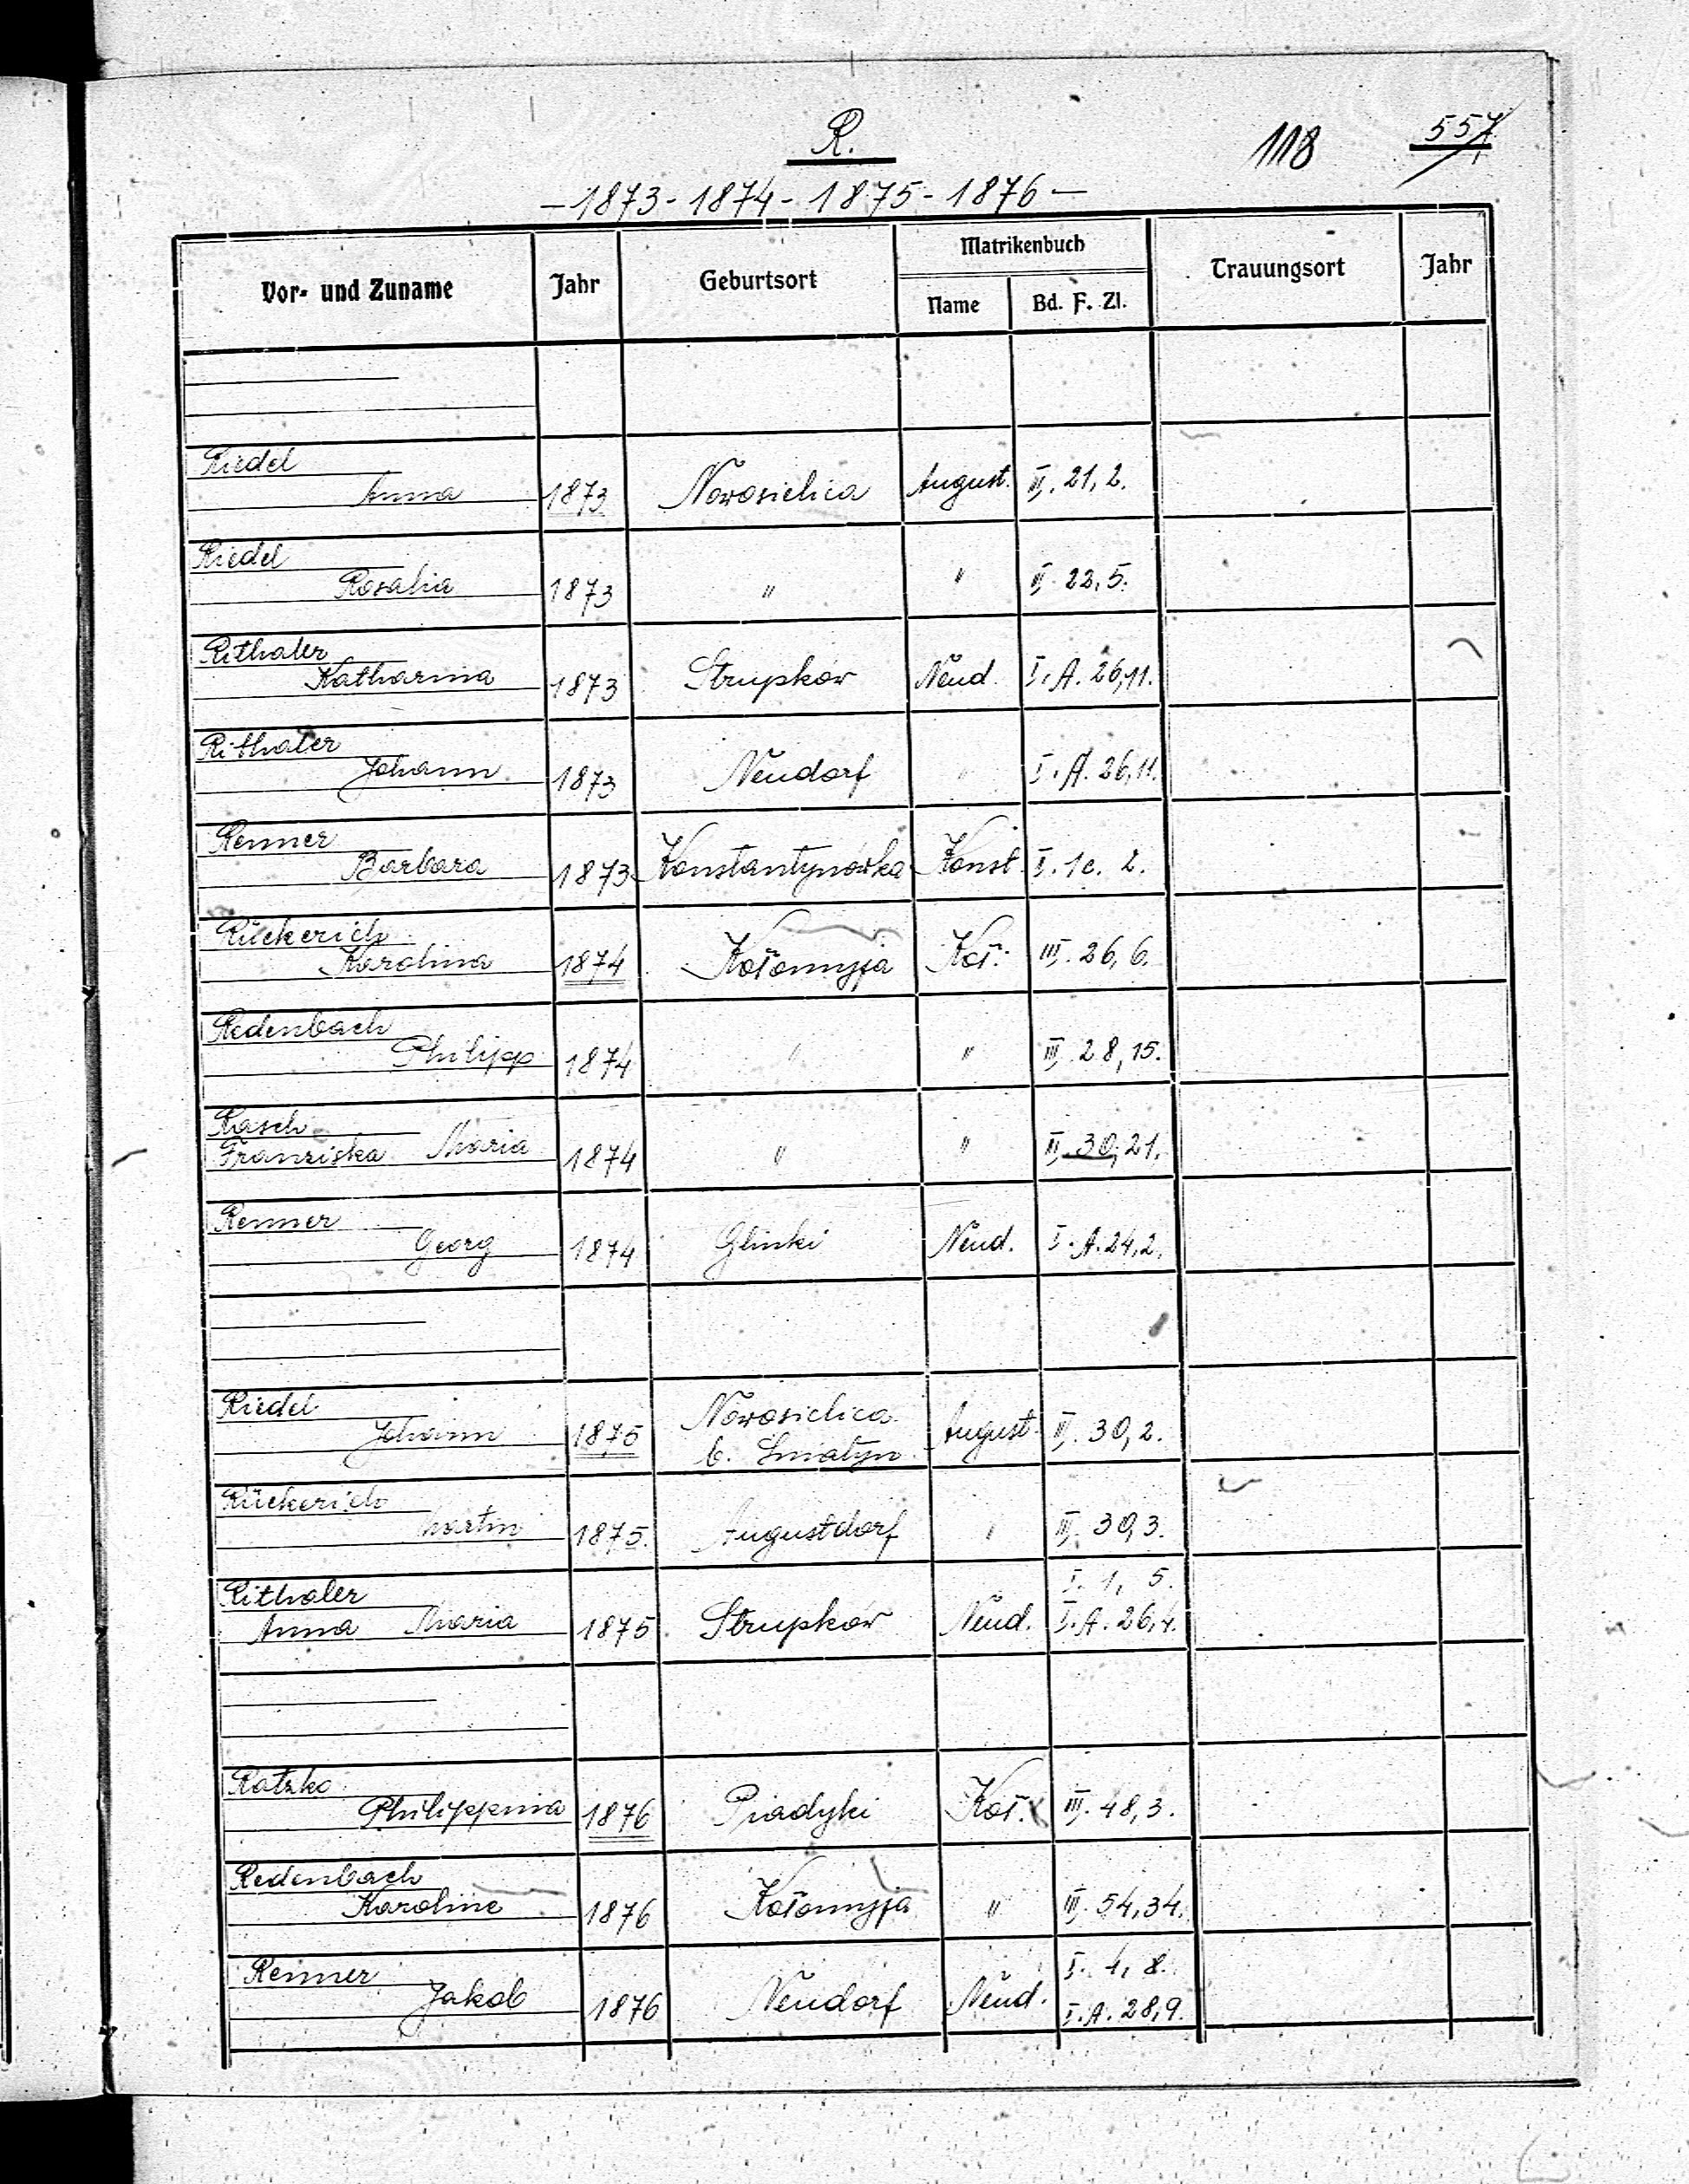 R.
118 557
- 1873 - 1874 - 1875 - 1876 -
Vor- und Zuname Jahr Geburtsort Matrikenbuch Trauungsort Jahr
Name Bd. F. Zl.
Riedel
Anna 1873 Nowosielica August. II. 21, 2.
Riedel
Rosalia 1873 " " II. 22, 5.
Rithaler
Katharina 1873 Strupków Neud. I. A. 26, 11.
Rithaler
Johann 1873 Neudorf " I. A. 26, 11.
Renner
Barbara 1873 Konstantynówka Konst. I. 1c. 2.
Rückerich
Karolina 1874 Kołomyja Koł. III. 26, 6.
Redenbach
Philipp 1874 " " III. 28, 15.
Rasch
Franziska Maria 1874 " " III. 30, 21.
Renner
Georg 1874 Glinki Neud. I. A. 24, 2.
Riedel
Johann 1875 Nowosielica August. II. 30, 2.
b. Śniatyn
Rückerich
Martin 1875. Augustdorf " II. 30, 3.
Rithaler I. 1, 5.
Anna Maria 1875 Strupków Neud. I. A. 26, 4.
Ratzko
Philippina 1876 Piadyki Koł. III. 48, 3.
Redenbach
Karoline 1876 Kołomyja " III. 54, 34.
Renner I. 4, 8.
Jakob 1876 Neudorf Neud. I. A. 28, 9.